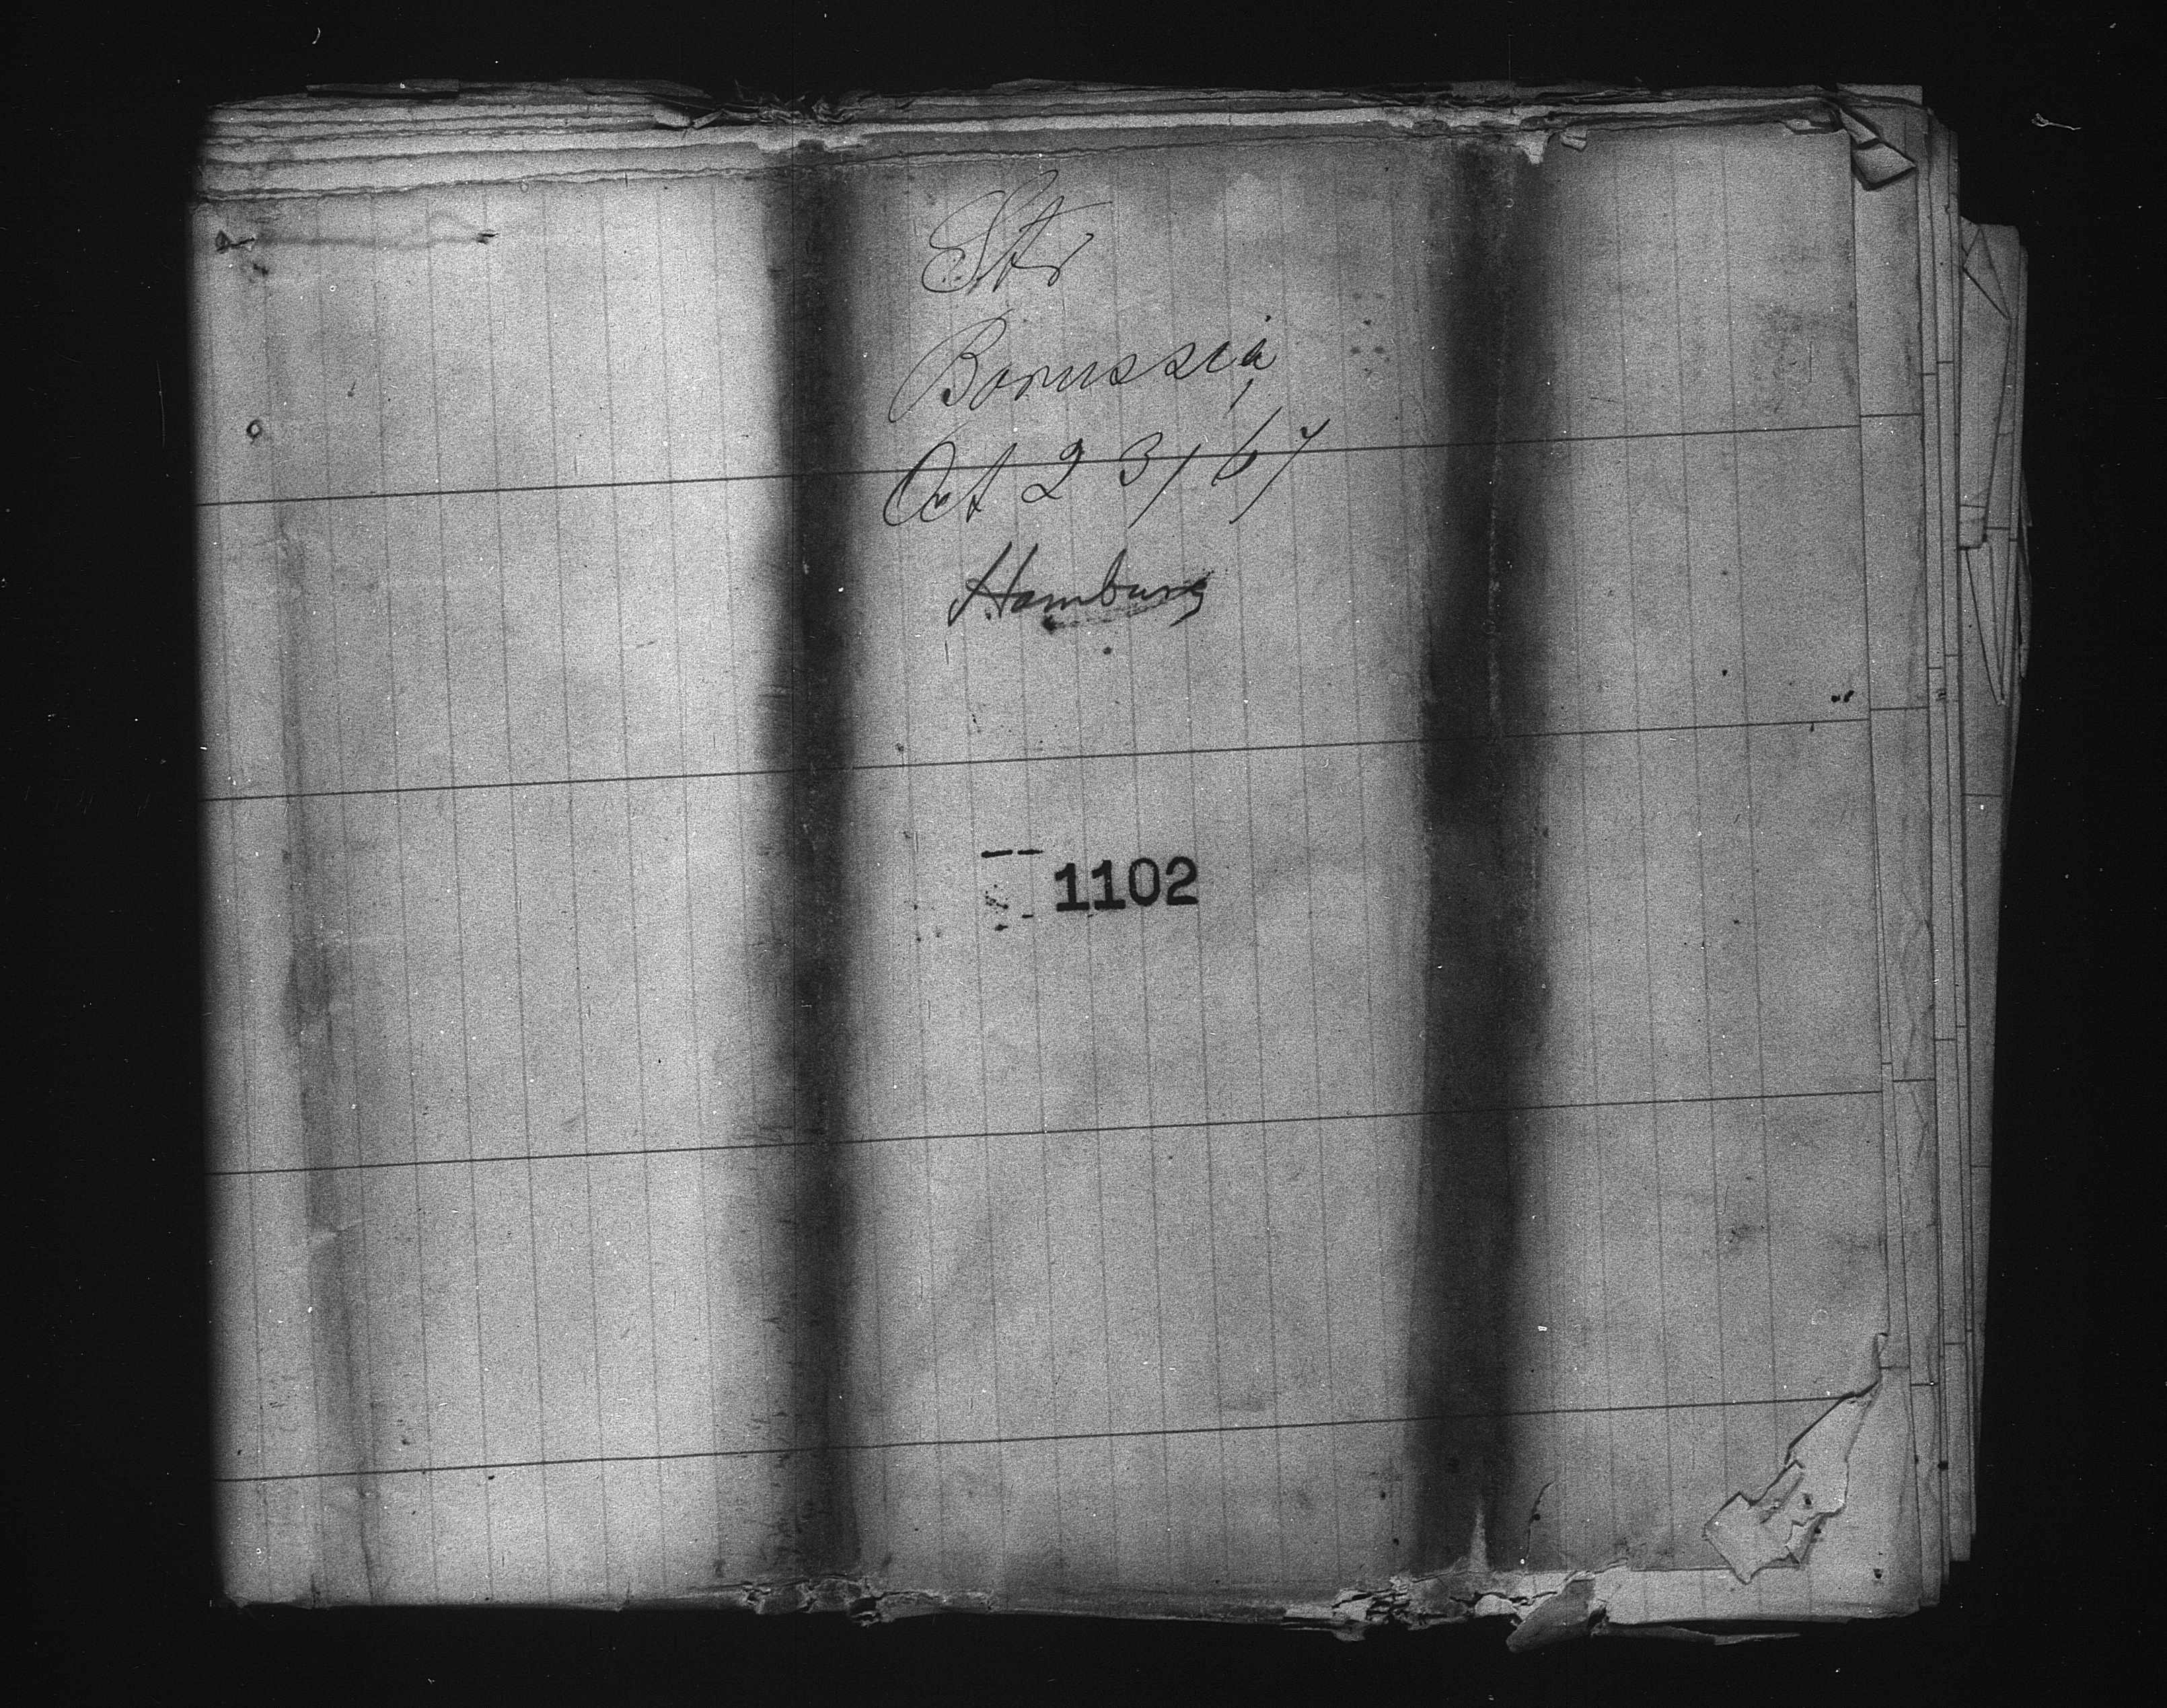 Str
Borussia
Oct 23/67
Hamburg
1102